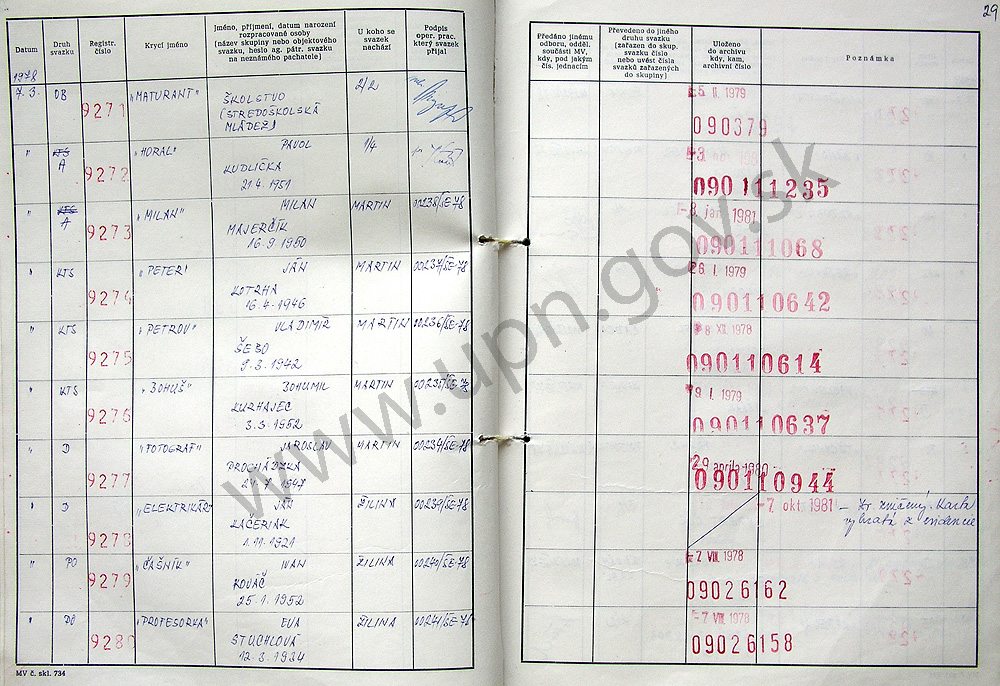 29
Datum
Druh svazku
Registr. číslo
Krycí jméno
Jméno, příjmení, datum narození rozpracované osoby (název skupiny nebo objektového svazku, heslo ag. pátr. svazku na neznámého pachatele)
U koho se svazek nachází
Podpis oper. prac. který svazek přijal
Předáno jinému odboru, odděl. součásti MV, kdy, pod jakým čís. jednacím
Převedeno do jiného druhu svazku (zařazen do skup. svazku číslo nebo uvést čísla svazků zařazených do skupiny)
Uloženo do archivu kdy, kam, archivní číslo
Poznámka
1978
7.3. OB 9271 "MATURANT" ŠKOLSTVO (STREDOŠKOLSKÁ MLÁDEŽ) 2/2 5 II. 1979 090379
" A 9272 "HORAL" PAVOL KUDLIČKA 21.4.1951 1/4 090111235
" A 9273 "MILAN" MILAN MAJERČÍK 16.9.1950 MARTIN 00238/SE-78 -8 jan. 1981 090111068
" KTS 9274 "PETER" JÁN 16.4.1946 MARTIN 00237/SE-78 26. I. 1979 090110642
" KTS 9275 "PETROV" VLADIMÍR ŠEBO 9.3.1942 MARTIN 00236/SE-78 8 XII. 1978 090110614
" KTS 9276 "BOHUŠ" BOHUMIL KURHAJEC 3.3.1952 MARTIN 00235/SE-78 9. I. 1979 090110637
" D 9277 "FOTOGRAF" JAROSLAV PROCHÁDZKA 1947 MARTIN 00234/SE-78 29 apríla 1980 090110944
" D 9278 "ELEKTRIKÁR" JÁN KAČERIAK 1.11.1921 ŽILINA 00239/SE-78 -7 okt. 1981 – zničený. Karta vybratá z evidencie
" PO 9279 "ČAŠNÍK" IVAN KOVÁČ 25.1.1952 ŽILINA 00240/SE-78 -7 VIII. 1978 09026162
" 9280 "PROFESORKA" EVA STUCHLOVÁ 12.3.1934 ŽILINA 00241/SE-78 -7 VIII. 1978 09026158
MV č. skl. 734
www.upn.gov.sk